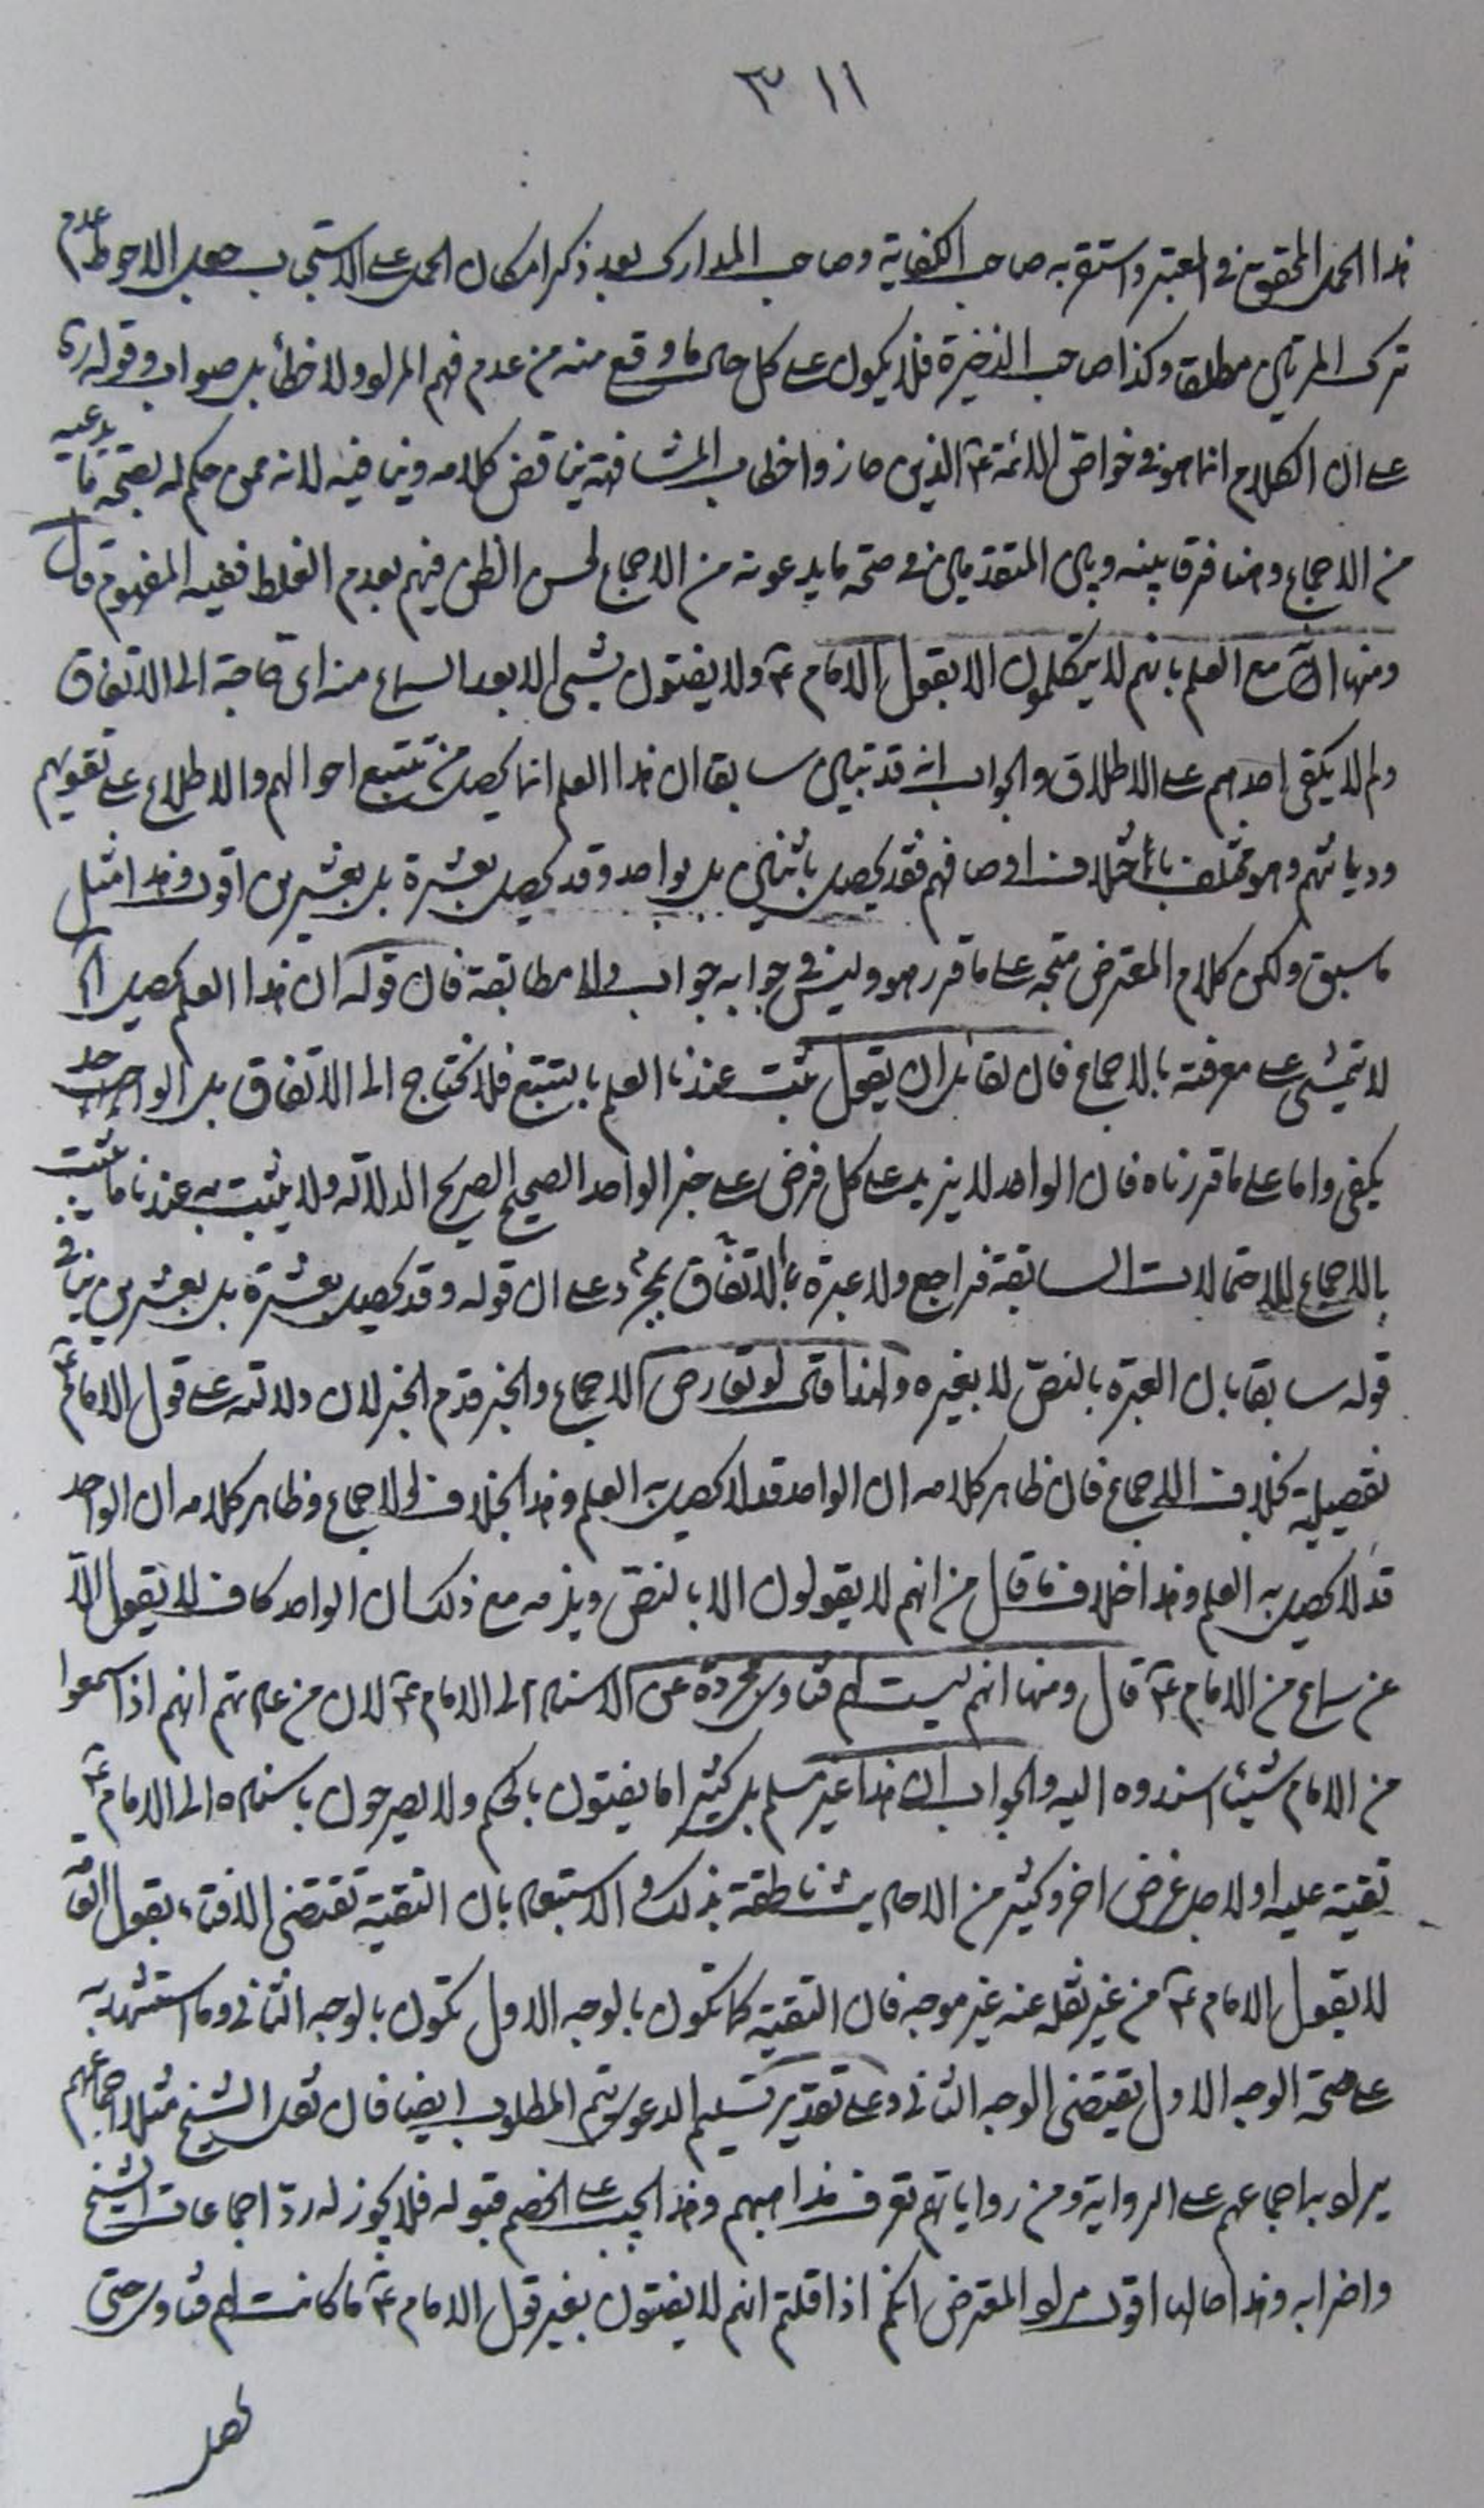 ٣١١
هذا الحمل المحقق في المعتبر واستقر به صاحب الكفاية وصاحب المدارك بعد ذكر امكان الحمل على الاستحباب جعل الاحوط عدم
ترك المرتين مطلقا وكذا صاحب الذخيرة فلا يكون على كل حال ما وقع منه من عدم فهم المراد ولا خطأ بل صواب وقوله
على ان الكلام انما هو في خواص الائمة ع الذين حازوا خطاب المشافهة يناقض كلامه وينافيه لانه ممن حكم له بصحة ما يدعيه
من الاجماع وهنا فرق بينه وبين المتقدمين في صحة ما يدعونه من الاجماع لحسن الظن فيهم بعدم الغلط ففيه المفهوم قال
ومنها انه مع العلم بانهم لا يتكلمون الا بقول الامام ع ولا يفتون بشئ الا بعد السماع منه اى حاجة الى الاتفاق
ولم لا يكفى احدهم على الاطلاق والجواب انه قد تبين سابقا ان هذا العلم انما يحصل من تتبع احوالهم والاطلاع على تقويهم
وديانتهم وهو مختلف باختلاف اوصافهم فقد يحصل باثنين بل بواحد وقد يحصل بعشرة بل بعشرين اقول وهذا مثل
ما سبق ولكن كلام المعترض متجه على ما قرره هو وليس في جوابه جواب ولا مطابقة فان قوله ان هذا العلم يحصل اه
لا يتمشى على معرفته بالاجماع فان لقائل ان يقول ثبت عندنا العلم بالتتبع فلا نحتاج الى الاتفاق بل الواحد
يكفى واما على ما قررناه فان الواحد لا يزيد على كل فرض على خبر الواحد الصحيح الصريح الدلالة ولا يثبت به عندنا ما يثبت
بالاجماع للاحتمالات السابقة فراجع ولا عبرة بالاتفاق بمجرد على ان قوله وقد يحصل بعشرة بل بعشرين ينافى
قوله سابقا بان العبرة بالنص لا بغيره ولهذا متى لو تعارض الاجماع والخبر قدم الخبر لان دلالته على قول الامام ع
تفصيلية بخلاف الاجماع فان ظاهر كلامه ان الواحد قد لا يحصل به العلم وهذا بخلاف الاجماع وظاهر كلامه ان الواحد
قد لا يحصل به العلم وهذا خلاف ما قال من انهم لا يقولون الا بالنص ويلزمه مع ذلك ان الواحد كاف لانه لا يقول الا
عن سماع من الامام ع قال ومنها انهم ليست لهم فتاوى مجردة عن الاسناد الى الامام ع لان من عادتهم انهم اذا سمعوا
من الامام شيئا اسندوه اليه والجواب ان هذا غير مسلم بل كثيرا ما يفتون بالحكم ولا يصرحون باسناده الى الامام ع
تقية عليه او لاجل غرض اخر وكثير من الاحاديث ناطقة بذلك والاستبعاد بان التقية تقتضى الافتاء بقول العامة
لا بقول الامام ع من غير نقله عنه غير موجه فان التقية كما تكون بالوجه الاول تكون بالوجه الثانى وما استشهد به
على صحة الوجه الاول يقتضى الوجه الثانى وعلى تقدير تسليم الدعوى يتم المطلوب ايضا فان نقل الشيخ مثلا اجماعهم
يراد به اجماعهم على الرواية ومن رواياتهم تعرف مذاهبهم وهذا يجب على الخصم قبوله فلا يجوز له رد اجماعات الشيخ
واضرابه وهذا اقول مراد المعترض انكم اذا قلتم انهم لا يفتون بغير قول الامام ع ما كانت لهم فتاوى حتى